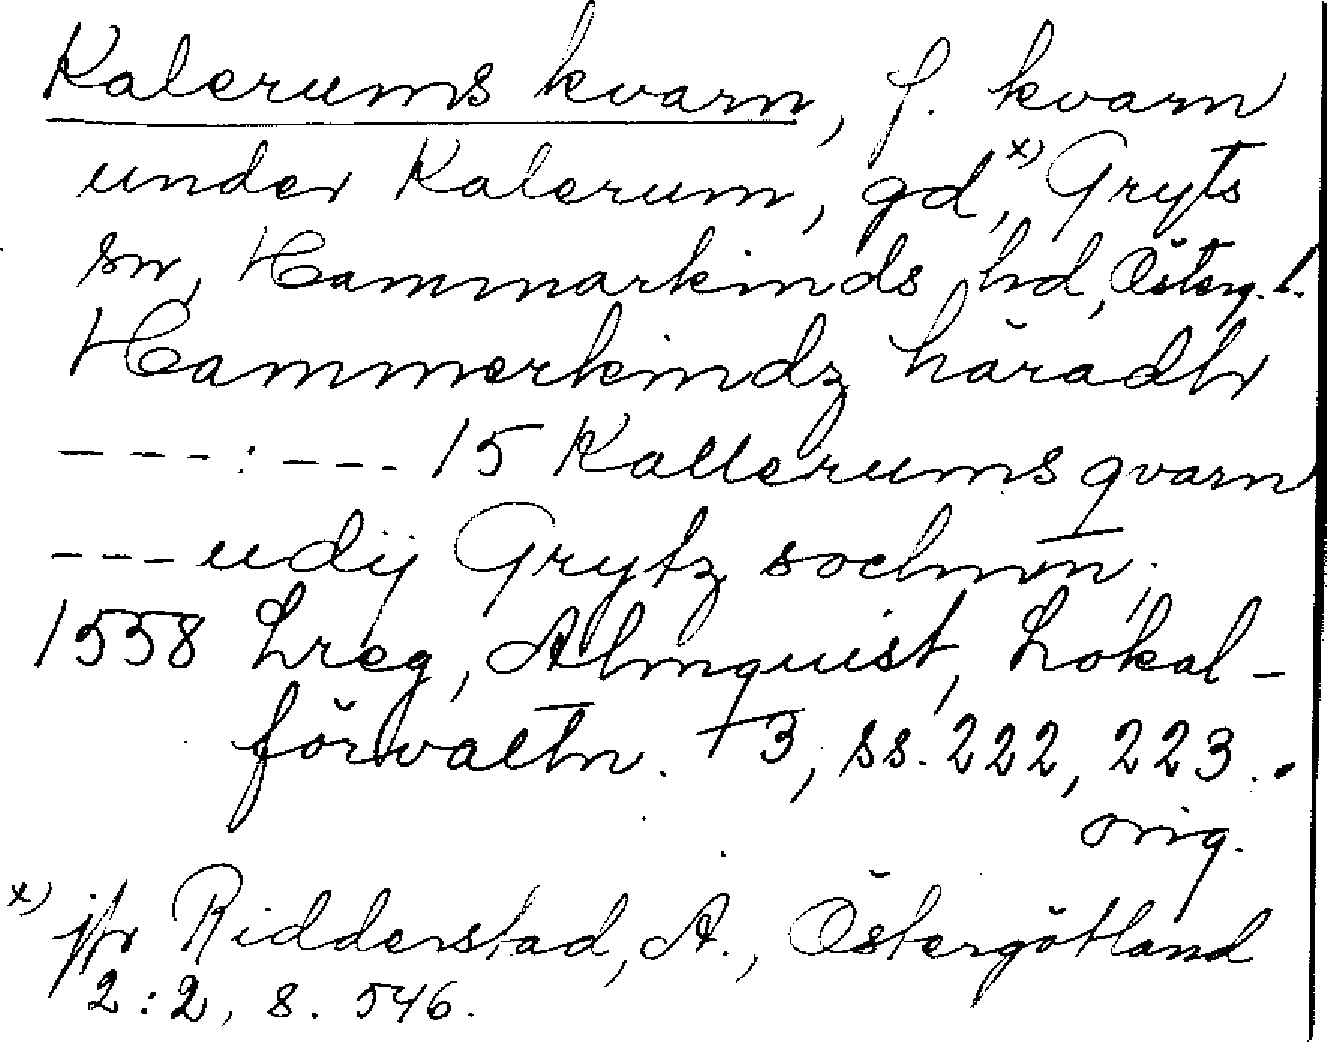 Kalerums kvarn, f. kvarn
under Kalerum, gd,x) Gryts
sn, Hammarkinds hd, Österg. l.
Hammerkindz häradh
---:--- 15 Kallerums qvarn
--- udij Grytz sochnn;
1558 Lreg, Almquist, Lokal-
förvaltn. 3, ss. 222, 223.
orig.
x) jfr Ridderstad, A., Östergötland
2:2, s. 546.